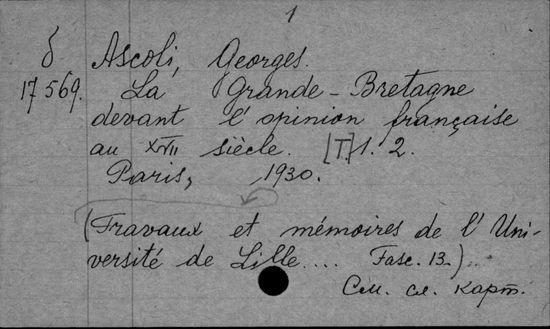 1
δ Ascoli, Georges.
17569. La Grande-Bretagne
devant l'opinion française
au XVII siècle. [T.] 1. 2.
Paris, 1930.
(Travaux et mémoires de l'Uni-
versité de Lille.... Fasc. 13.)...
См. сл. карт.